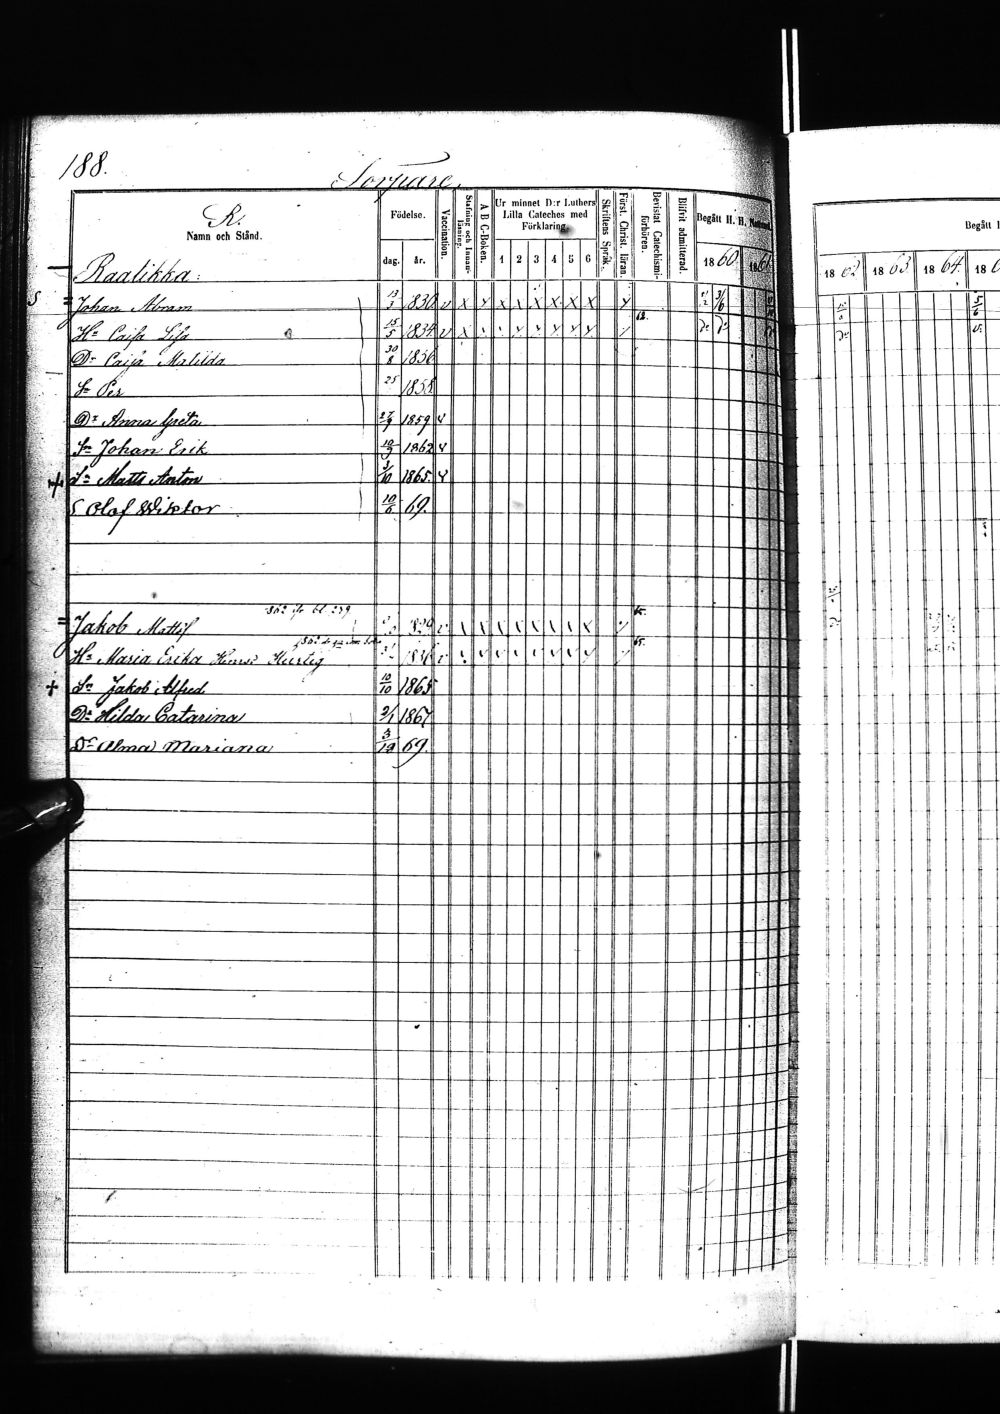 188.
Torpare.
R.
Namn och Stånd.
Födelse.
dag. år.
Vaccination.
Stafning och Innanläsning.
A B C-Boken.
Ur minnet D:r Luthers Lilla Cateches med Förklaring.
1 2 3 4 5 6
Skriftens Språk.
Först. Christ. läran.
Bevistat Catechismiförhören.
Blifvit admitterad.
Begått H. H. Nattvard.
1860. 1861.
Begått
1862 1863 1864. 18
Raalikka:
Johan Abram 13/3 1830 v x x x x x x x x
Hu Caisa Lisa 15/5 1834 v x
Dr Caijsa Matilda 30/8 1856
Sn Per 25 1855
Dr Anna Greta 27/9 1859 v
Sn Johan Erik 10/9 1862 v
Sn Matts Anton 3/10 1865. v
S Olof Wiktor 10/6 69.
1862 fr bl. 239
Jakob Mattsf 65.
Hu Maria Erika Hurtig 65.
Sn Jakob Alfred 10/10 1865
Dr Hilda Catarina 2/1 1867
Dr Alma Mariana 3/12 69.